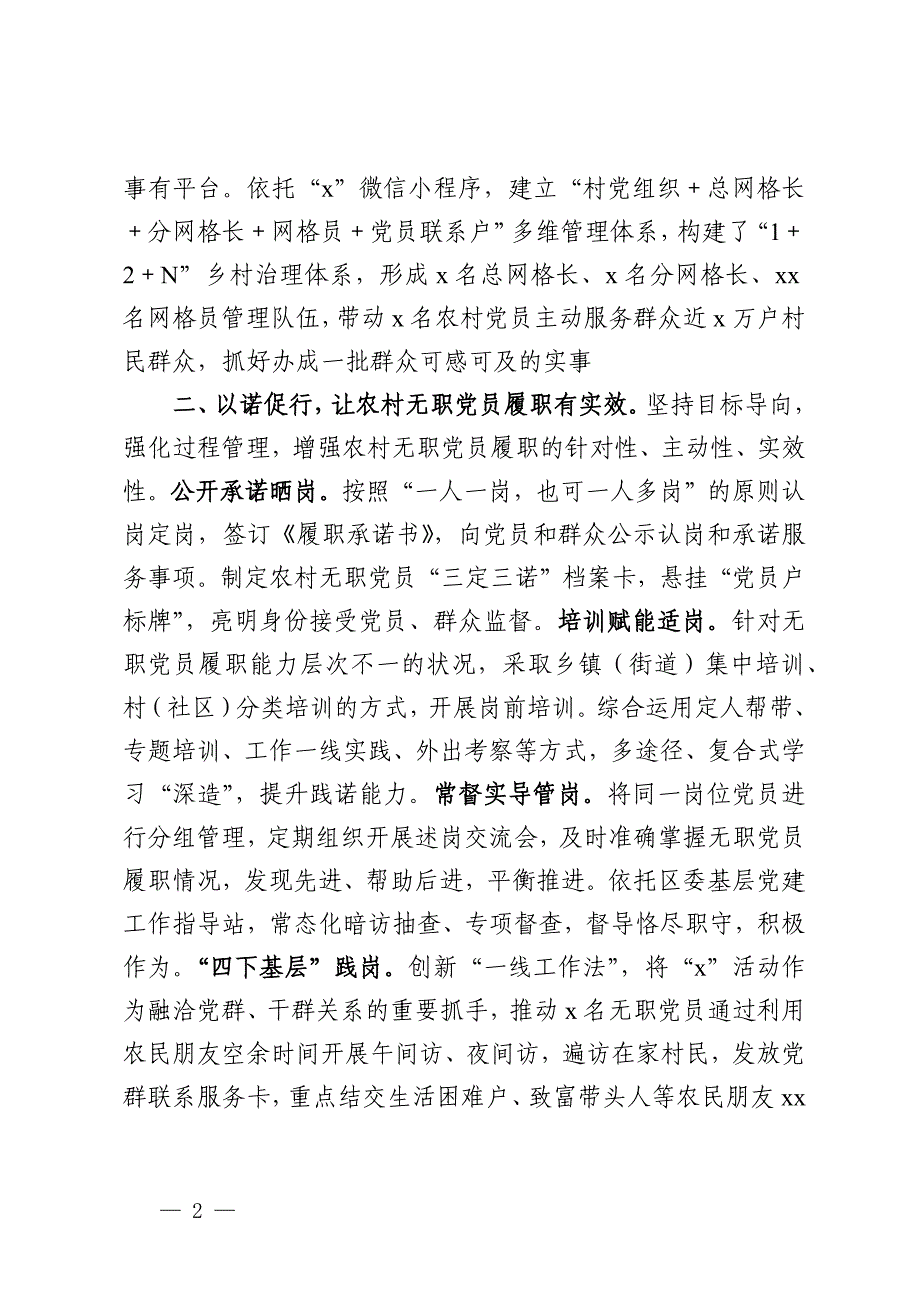 事有平台。依托“x”微信小程序，建立“村党组织+总网格长
+分网格长+网格员+党员联系户”多维管理体系，构建了“1+
2+N”乡村治理体系，形成 x 名总网格长、x 名分网格长、xx
名网格员管理队伍，带动 x 名农村党员主动服务群众近 x 万户村
民群众，抓好办成一批群众可感可及的实事
二、以诺促行，让农村无职党员履职有实效。坚持目标导向，
强化过程管理，增强农村无职党员履职的针对性、主动性、实效
性。公开承诺晒岗。按照“一人一岗，也可一人多岗”的原则认
岗定岗，签订《履职承诺书》，向党员和群众公示认岗和承诺服
务事项。制定农村无职党员“三定三诺”档案卡，悬挂“党员户
标牌”，亮明身份接受党员、群众监督。培训赋能适岗。针对无
职党员履职能力层次不一的状况，采取乡镇（街道）集中培训、
村（社区）分类培训的方式，开展岗前培训。综合运用定人帮带、
专题培训、工作一线实践、外出考察等方式，多途径、复合式学
习“深造”，提升践诺能力。常督实导管岗。将同一岗位党员进
行分组管理，定期组织开展述岗交流会，及时准确掌握无职党员
履职情况，发现先进、帮助后进，平衡推进。依托区委基层党建
工作指导站，常态化暗访抽查、专项督查，督导恪尽职守，积极
作为。“四下基层”践岗。创新“一线工作法”，将“x”活动作
为融洽党群、干群关系的重要抓手，推动 x 名无职党员通过利用
农民朋友空余时间开展午间访、夜间访，遍访在家村民，发放党
群联系服务卡，重点结交生活困难户、致富带头人等农民朋友 xx
— 2 —